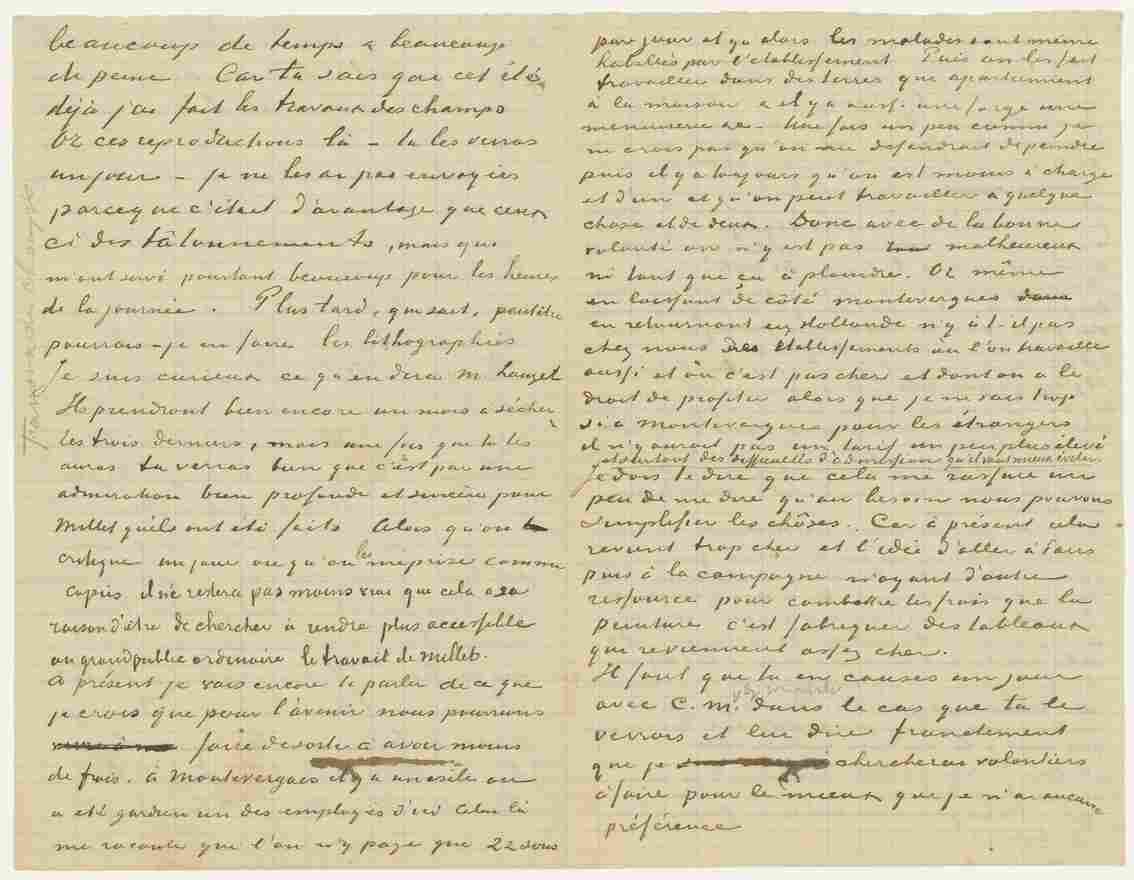 beaucoup de temps & beaucoup
de peine. Car tu sais que cet été
déja j'ai fait les travaux des champs
Or ces reproductions là – tu les verras
un jour – je ne les ai pas envoyées
parceque c'était d'avantage que ceux
ci des tâtonnements, mais qui
m'ont servi pourtant beaucoup pour les heures
de la journée. Plus tard, qui sait, peutêtre
pourrais-je en faire les lithographies
Je suis curieux ce qu'en dira M. Lauzet
Ils prendront bien encore un mois à sécher
les trois derniers, mais une fois que tu les
auras tu verras bien que c'est par une
admiration bien profonde et sincère pour
Millet qu'ils ont été faits Alors qu'on
critique un jour ou qu'on les méprise comme
copies il n'e restera pas moins vrai que cela a sa
raison d'être de chercher à rendre plus accessible
au grand public ordinaire le travail de Millet.
A présent je vais encore te parler de ce que
je crois que pour l'avenir nous pourrions
faire de sorte à avoir moins
de frais. à Montevergues il y a un asile ou
a été gardien un des employés d'ici Celui là
me raconte que l'on n'y paye que 22 sous
par jour et qu'alors les malades sont même
habillés par l'etablissement Puis on les fait
travailler dans des terres que apartiennent
à la maison & il y a aussi une forge une
menuiserie &c – Une fois un peu connu je
ne crois pas qu'on me defendrait de peindre
puis il y a toujours qu'on est moins à charge
et d'un et qu'on peut travailler à quelque
chose et de deux. Donc avec de la bonne
volonté on n'y est pas malheureux
ni tant que ça à plaindre. Or même
en laissant de côté montevergues
en retournant en Hollande n'y a t-il pas
chez nous des etablissements où l'on travaille
aussi et où c'est pas cher et dont on a le
droit de profiter alors que je ne sais trop
si à Montevergues pour les étrangers
il n'y aurait pas un tarif un peu plus élevé
et surtout des difficultés d'admission qu'il vaut mieux éviter.
Je dois te dire que cela me rassure un
peu de me dire qu'au besoin nous pouvons
simplifier les chôses. Car à présent cela
revient trop cher et l'idée d'aller à Paris
puis à la campagne n'ayant d'autre
ressource pour combattre les frais que la
peinture c'est fabriquer des tableaux
qui reviennent assez cher.
Il faut que tu en causes un jour
avec C.M. dans le cas que tu le
verrais et leur dire franchement
que je chercherai volontiers
à faire pour le mieux que je n'ai aucune
préférence